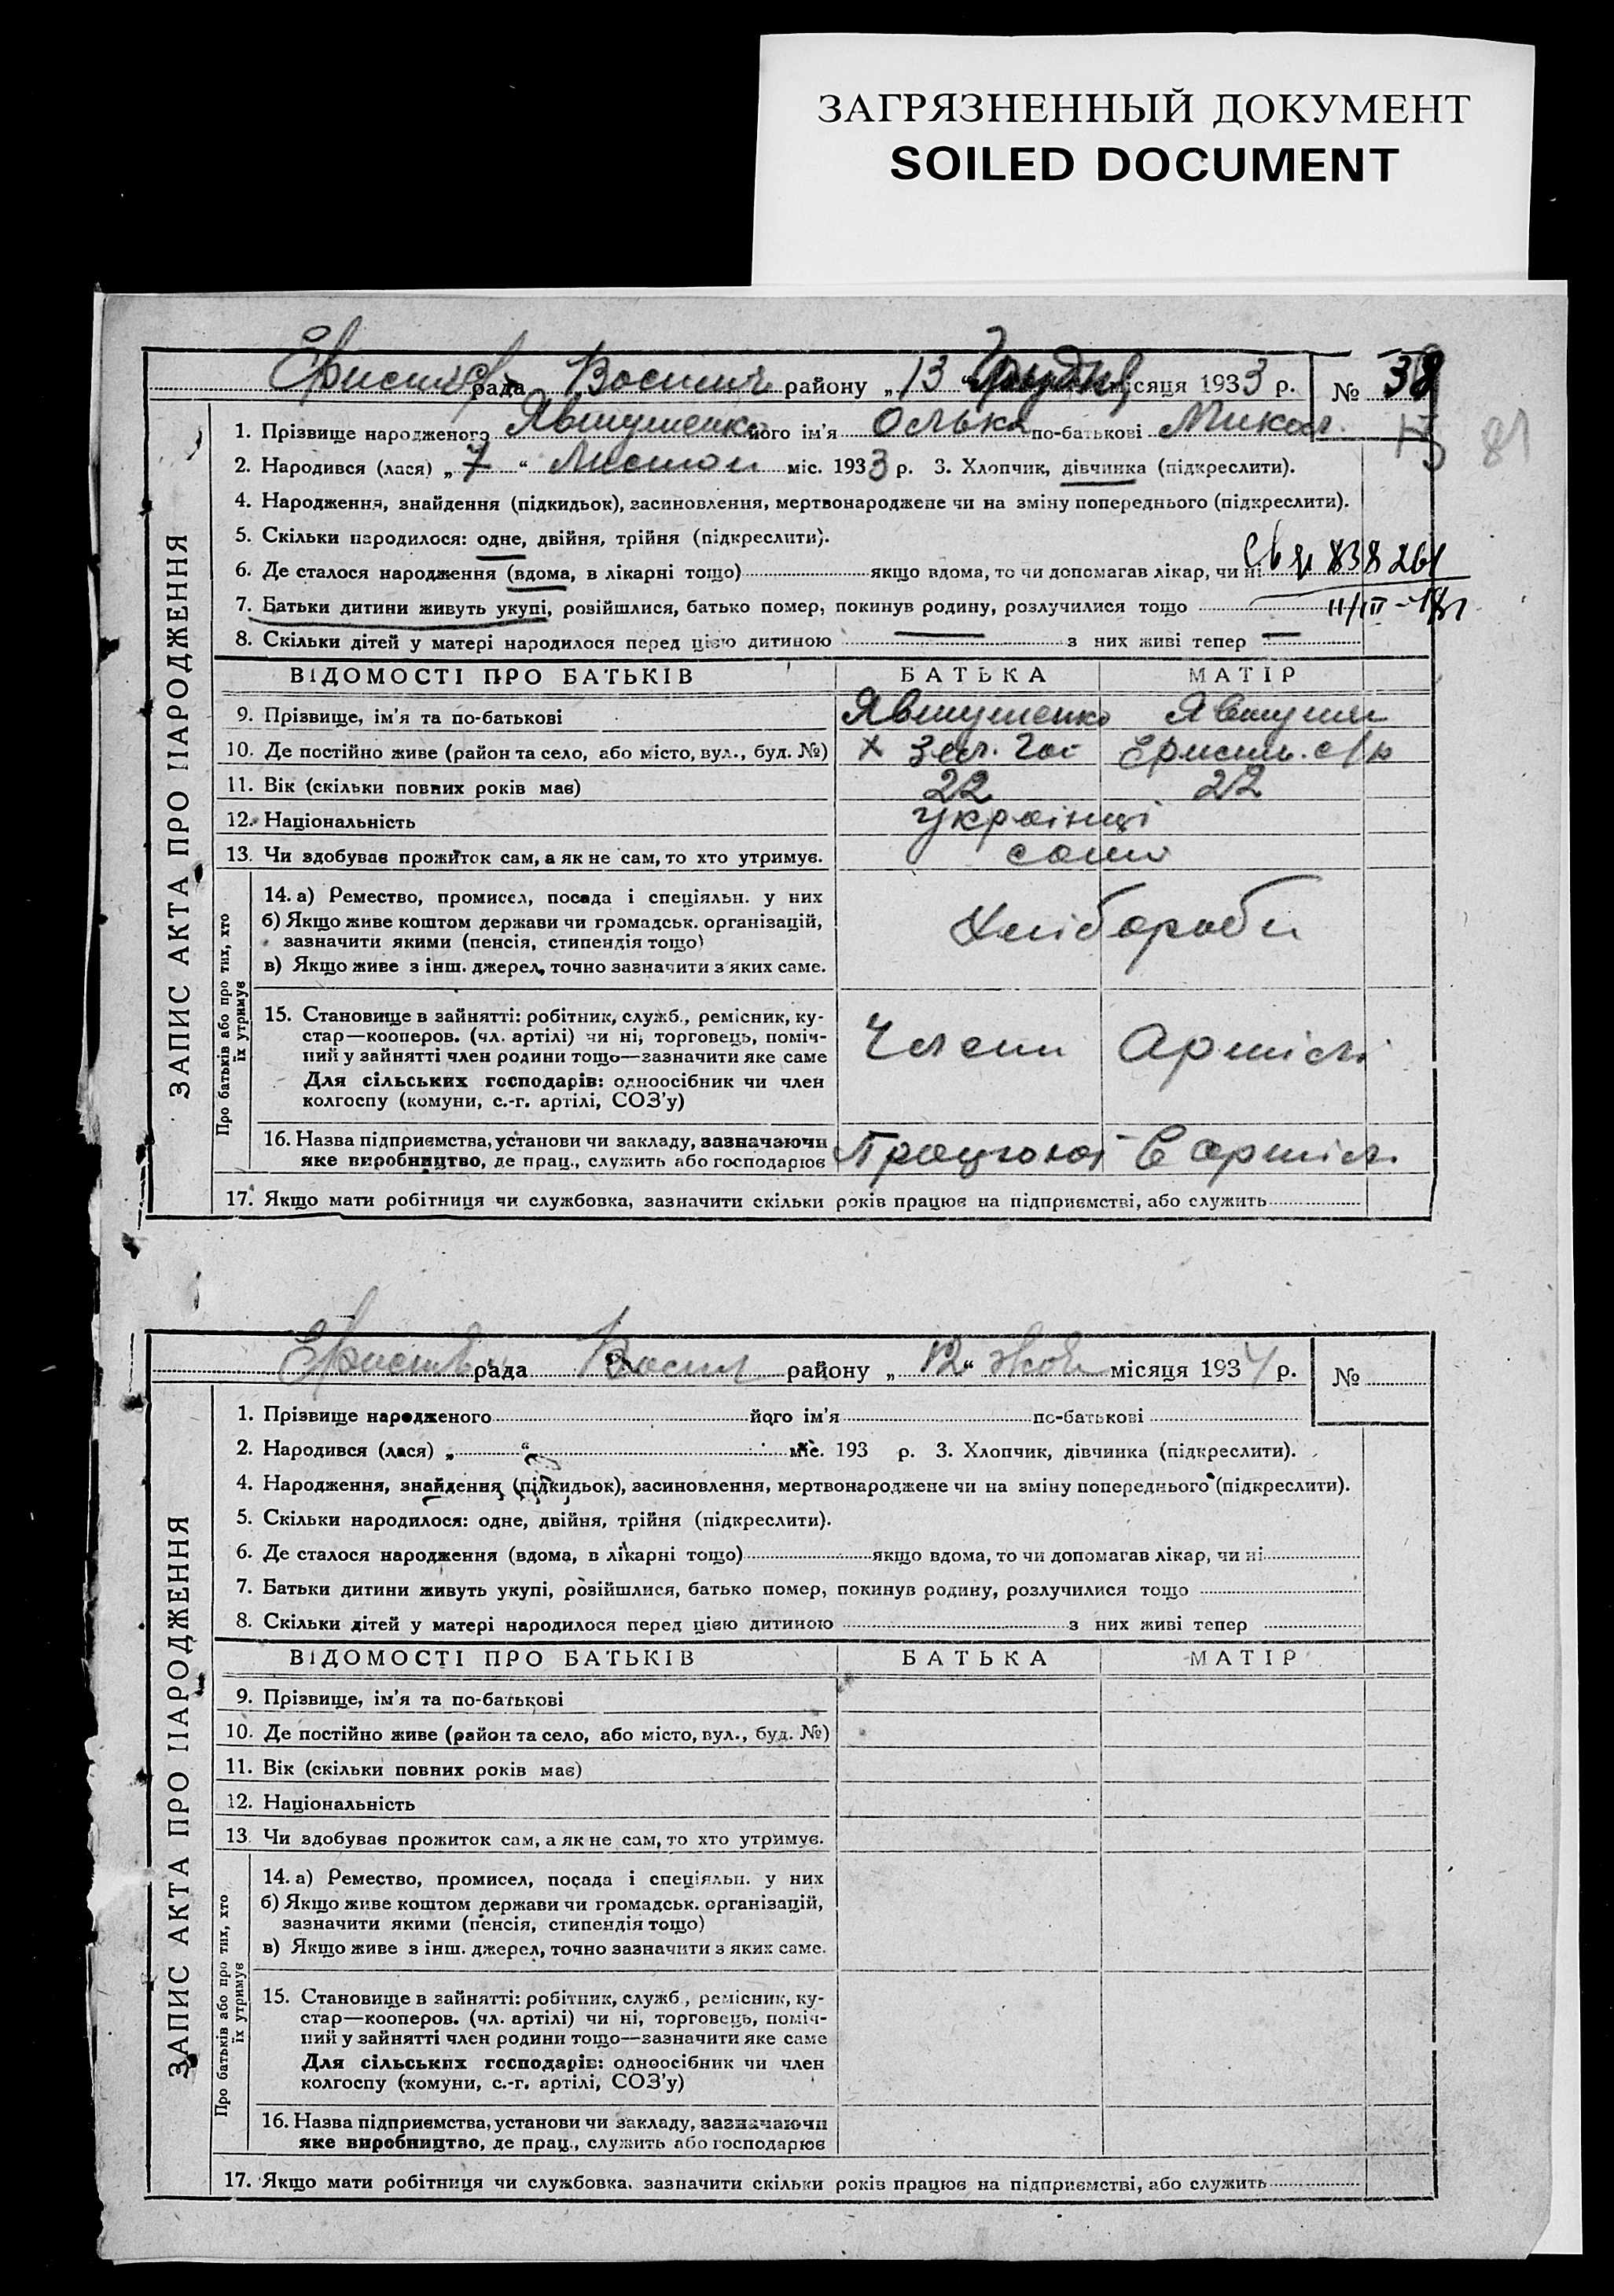 ЗАГРЯЗНЕННЫЙ ДОКУМЕНТ
SOILED DOCUMENT
рада району „13“ Грудня місяця 1933 р. № 38
1. Прізвище народженого Явтушенко його ім'я Олька по-батькові Микол.
81
2. Народився (лася) „7“ Листоп міс. 1933 р. 3. Хлопчик, дівчинка (підкреслити).
4. Народження, знайдення (підкидьок), засиновлення, мертвонароджене чи на зміну попереднього (підкреслити).
5. Скільки народилося: одне, двійня, трійня (підкреслити).
6. Де сталося народження (вдома, в лікарні тощо) якщо вдома, то чи допомагав лікар, чи ні 838261
7. Батьки дитини живуть укупі, розійшлися, батько помер, покинув родину, розлучилися тощо
8. Скільки дітей у матері народилося перед цією дитиною — з них живі тепер —
ВІДОМОСТІ ПРО БАТЬКІВ БАТЬКА МАТІР
9. Прізвище, ім'я та по-батькові Явтушенко Явтушен
10. Де постійно живе (район та село, або місто, вул., буд. №) Єристів. с/р
11. Вік (скільки повних років має) 22 22
12. Національність Українці
13. Чи здобував прожиток сам, а як не сам, то хто утримує. сами
14. а) Ремество, промисел, посада і спеціяльн. у них
б) Якщо живе коштом держави чи громадськ. організацій,
зазначити якими (пенсія, стипендія тощо)
в) Якщо живе з інш. джерел, точно зазначити з яких саме.
Хлібороби
15. Становище в зайнятті: робітник, служб., ремісник, ку-
стар—кооперов. (чл. артілі) чи ні, торговець, поміч-
ний у зайнятті член родини тощо—зазначити яке саме
Для сільських господарів: одноосібник чи член
колгоспу (комуни, с.-г. артілі, СОЗ'у)
Члени Артілі
16. Назва підприємства, установи чи закладу, зазначаючи
яке виробництво, де прац., служить або господарює
Працюют в артіл.
17. Якщо мати робітниця чи службовка, зазначити скільки років працює на підприємстві, або служить
ЗАПИС АКТА ПРО НАРОДЖЕННЯ
Про батьків або про тих, хто
їх утримує
рада району „12“ Жовт місяця 1934 р. №
1. Прізвище народженого його ім'я по-батькові
2. Народився (лася) „ “ міс. 193 р. 3. Хлопчик, дівчинка (підкреслити).
4. Народження, знайдення (підкидьок), засиновлення, мертвонароджене чи на зміну попереднього (підкреслити).
5. Скільки народилося: одне, двійня, трійня (підкреслити).
6. Де сталося народження (вдома, в лікарні тощо) якщо вдома, то чи допомагав лікар, чи ні
7. Батьки дитини живуть укупі, розійшлися, батько помер, покинув родину, розлучилися тощо
8. Скільки дітей у матері народилося перед цією дитиною з них живі тепер
ВІДОМОСТІ ПРО БАТЬКІВ БАТЬКА МАТІР
9. Прізвище, ім'я та по-батькові
10. Де постійно живе (район та село, або місто, вул., буд. №)
11. Вік (скільки повних років має)
12. Національність
13. Чи здобував прожиток сам, а як не сам, то хто утримує.
14. а) Ремество, промисел, посада і спеціяльн. у них
б) Якщо живе коштом держави чи громадськ. організацій,
зазначити якими (пенсія, стипендія тощо)
в) Якщо живе з інш. джерел, точно зазначити з яких саме.
15. Становище в зайнятті: робітник, служб., ремісник, ку-
стар—кооперов. (чл. артілі) чи ні, торговець, поміч-
ний у зайнятті член родини тощо—зазначити яке саме
Для сільських господарів: одноосібник чи член
колгоспу (комуни, с.-г. артілі, СОЗ'у)
16. Назва підприємства, установи чи закладу, зазначаючи
яке виробництво, де прац., служить або господарює
17. Якщо мати робітниця чи службовка, зазначити скільки років працює на підприємстві, або служить
ЗАПИС АКТА ПРО НАРОДЖЕННЯ
Про батьків або про тих, хто
їх утримує